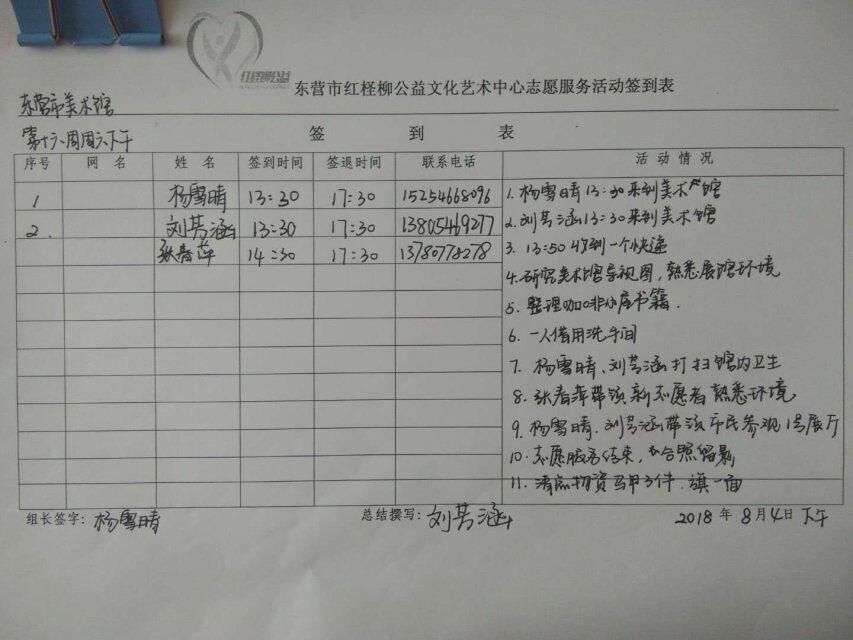 红柽柳公益
东营市红柽柳公益文化艺术中心志愿服务活动签到表
东营市美术馆
第十六周周六下午
签 到 表
序号 网名 姓名 签到时间 签退时间 联系电话 活动情况
1 杨雪晴 13:30 17:30 15254668096
2. 刘芳涵 13:30 17:30 13805469277
张春萍 14:30 17:30 13780778278
1. 杨雪晴13:30来到美术馆
2. 刘芳涵13:30来到美术馆
3. 13:50收到一个快递
4. 研究美术馆导视图,熟悉展馆环境
5. 整理咖啡小屋书籍.
6. 一人借用洗手间
7. 杨雪晴、刘芳涵打扫馆内卫生
8. 张春萍带领新志愿者熟悉环境
9. 杨雪晴、刘芳涵带领市民参观1号展厅
10. 志愿服务结束,合照留影
11. 清点物资马甲3件、旗一面
组长签字:杨雪晴
总结撰写:刘芳涵
2018年8月4日下午